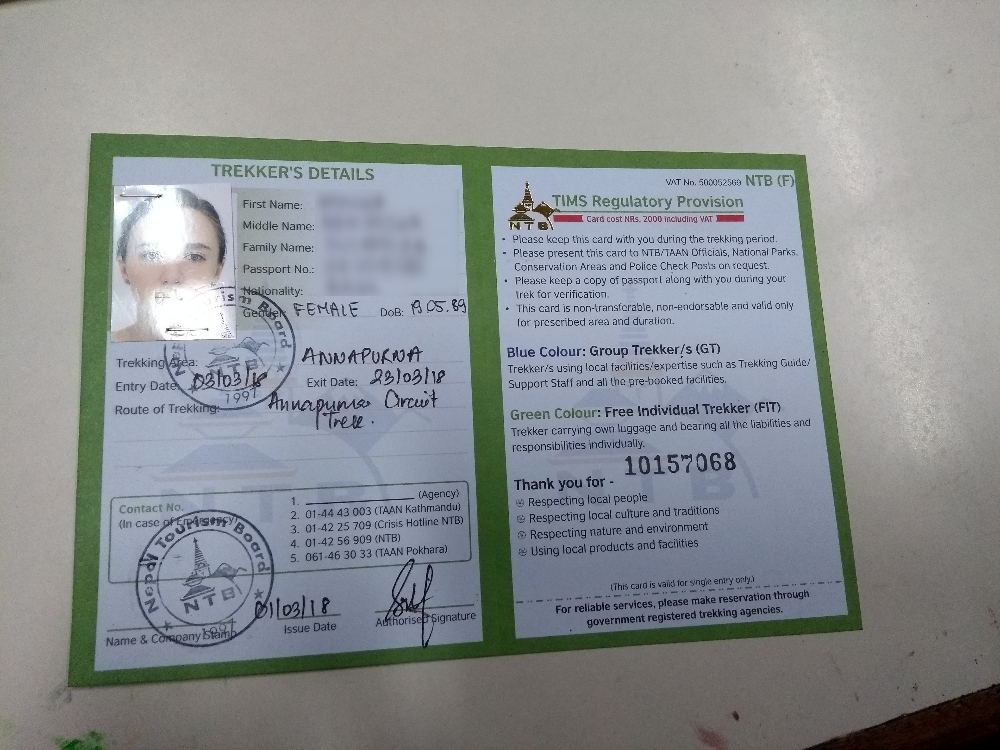 TREKKER'S DETAILS
First Name:
Middle Name:
Family Name:
Passport No.:
Nationality:
Gender: FEMALE DoB: 19.05.89
Trekking Area: ANNAPURNA
Entry Date: 03/03/18 Exit Date: 23/03/18
Route of Trekking: Annapurna Circuit
Trek.
Contact No.
(In case of Emergency)
1. (Agency)
2. 01-44 43 003 (TAAN Kathmandu)
3. 01-42 25 709 (Crisis Hotline NTB)
4. 01-42 56 909 (NTB)
5. 061-46 30 33 (TAAN Pokhara)
Nepal Tourism Board
NTB
1997
01/03/18
Name & Company Stamp Issue Date Authorised Signature
VAT No. 500052569 NTB (F)
NTB
TIMS Regulatory Provision
Card cost NRs. 2000 including VAT
• Please keep this card with you during the trekking period.
• Please present this card to NTB/TAAN Officials, National Parks,
Conservation Areas and Police Check Posts on request.
• Please keep a copy of passport along with you during your
trek for verification.
• This card is non-transferable, non-endorsable and valid only
for prescribed area and duration.
Blue Colour: Group Trekker/s (GT)
Trekker/s using local facilities/expertise such as Trekking Guide/
Support Staff and all the pre-booked facilities.
Green Colour: Free Individual Trekker (FIT)
Trekker carrying own luggage and bearing all the liabilities and
responsibilities individually.
10157068
Thank you for -
Respecting local people
Respecting local culture and traditions
Respecting nature and environment
Using local products and facilities
(This card is valid for single entry only.)
For reliable services, please make reservation through
government registered trekking agencies.